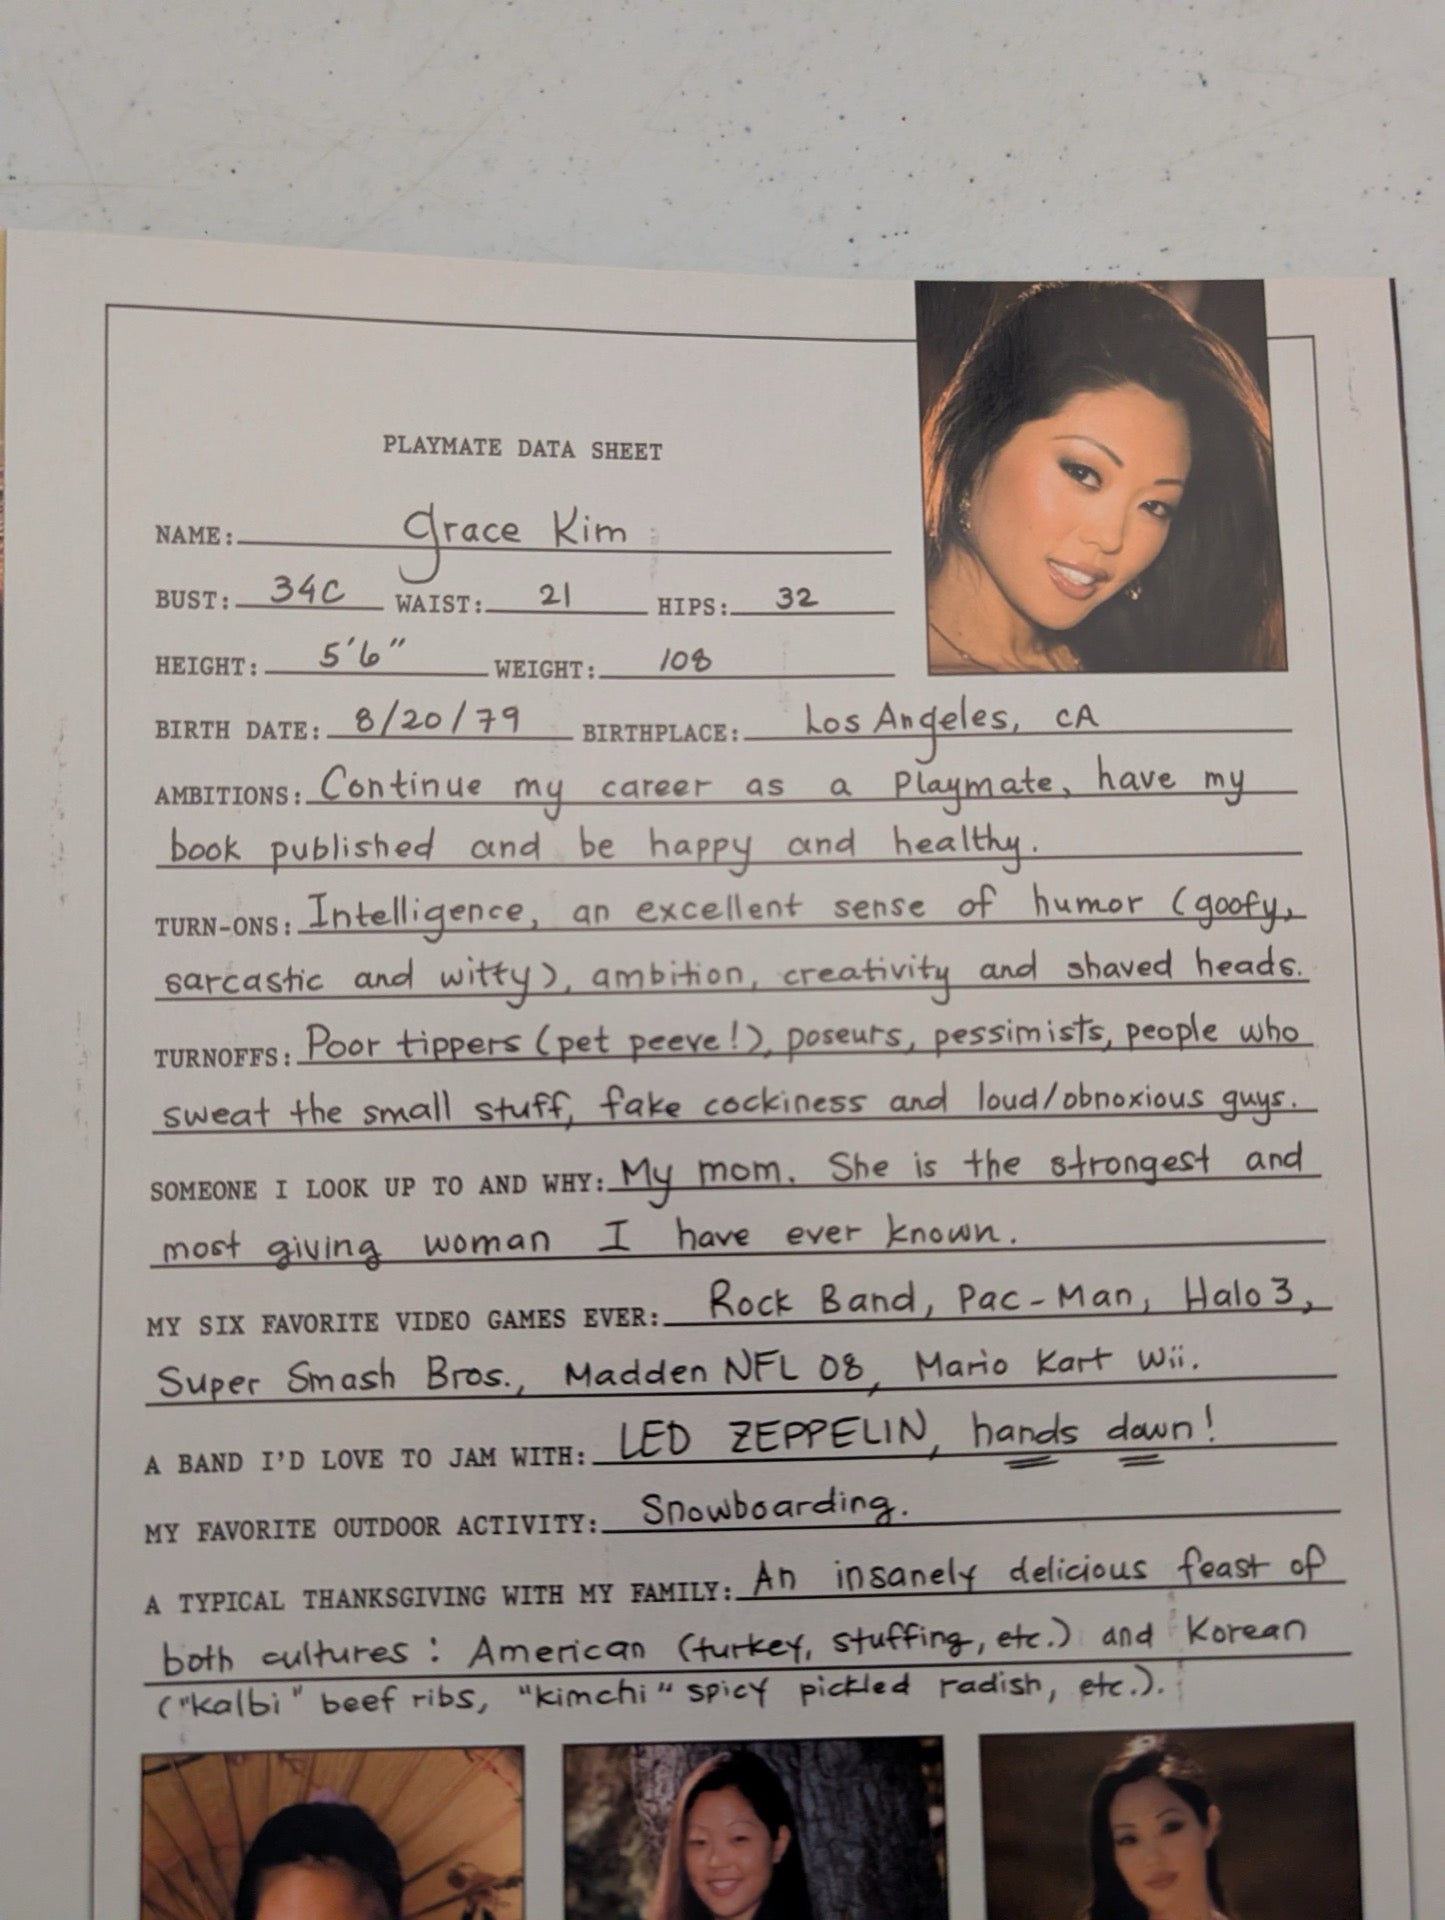 PLAYMATE DATA SHEET
NAME: Grace Kim
BUST: 34C WAIST: 21 HIPS: 32
HEIGHT: 5'6" WEIGHT: 108
BIRTH DATE: 8/20/79 BIRTHPLACE: Los Angeles, CA
AMBITIONS: Continue my career as a Playmate, have my
book published and be happy and healthy.
TURN-ONS: Intelligence, an excellent sense of humor (goofy,
sarcastic and witty), ambition, creativity and shaved heads.
TURNOFFS: Poor tippers (pet peeve!), poseurs, pessimists, people who
sweat the small stuff, fake cockiness and loud/obnoxious guys.
SOMEONE I LOOK UP TO AND WHY: My mom. She is the strongest and
most giving woman I have ever known.
MY SIX FAVORITE VIDEO GAMES EVER: Rock Band, Pac-Man, Halo 3,
Super Smash Bros., Madden NFL 08, Mario Kart Wii.
A BAND I'D LOVE TO JAM WITH: LED ZEPPELIN, hands down!
MY FAVORITE OUTDOOR ACTIVITY: Snowboarding.
A TYPICAL THANKSGIVING WITH MY FAMILY: An insanely delicious feast of
both cultures: American (turkey, stuffing, etc.) and Korean
("kalbi" beef ribs, "kimchi" spicy pickled radish, etc.).